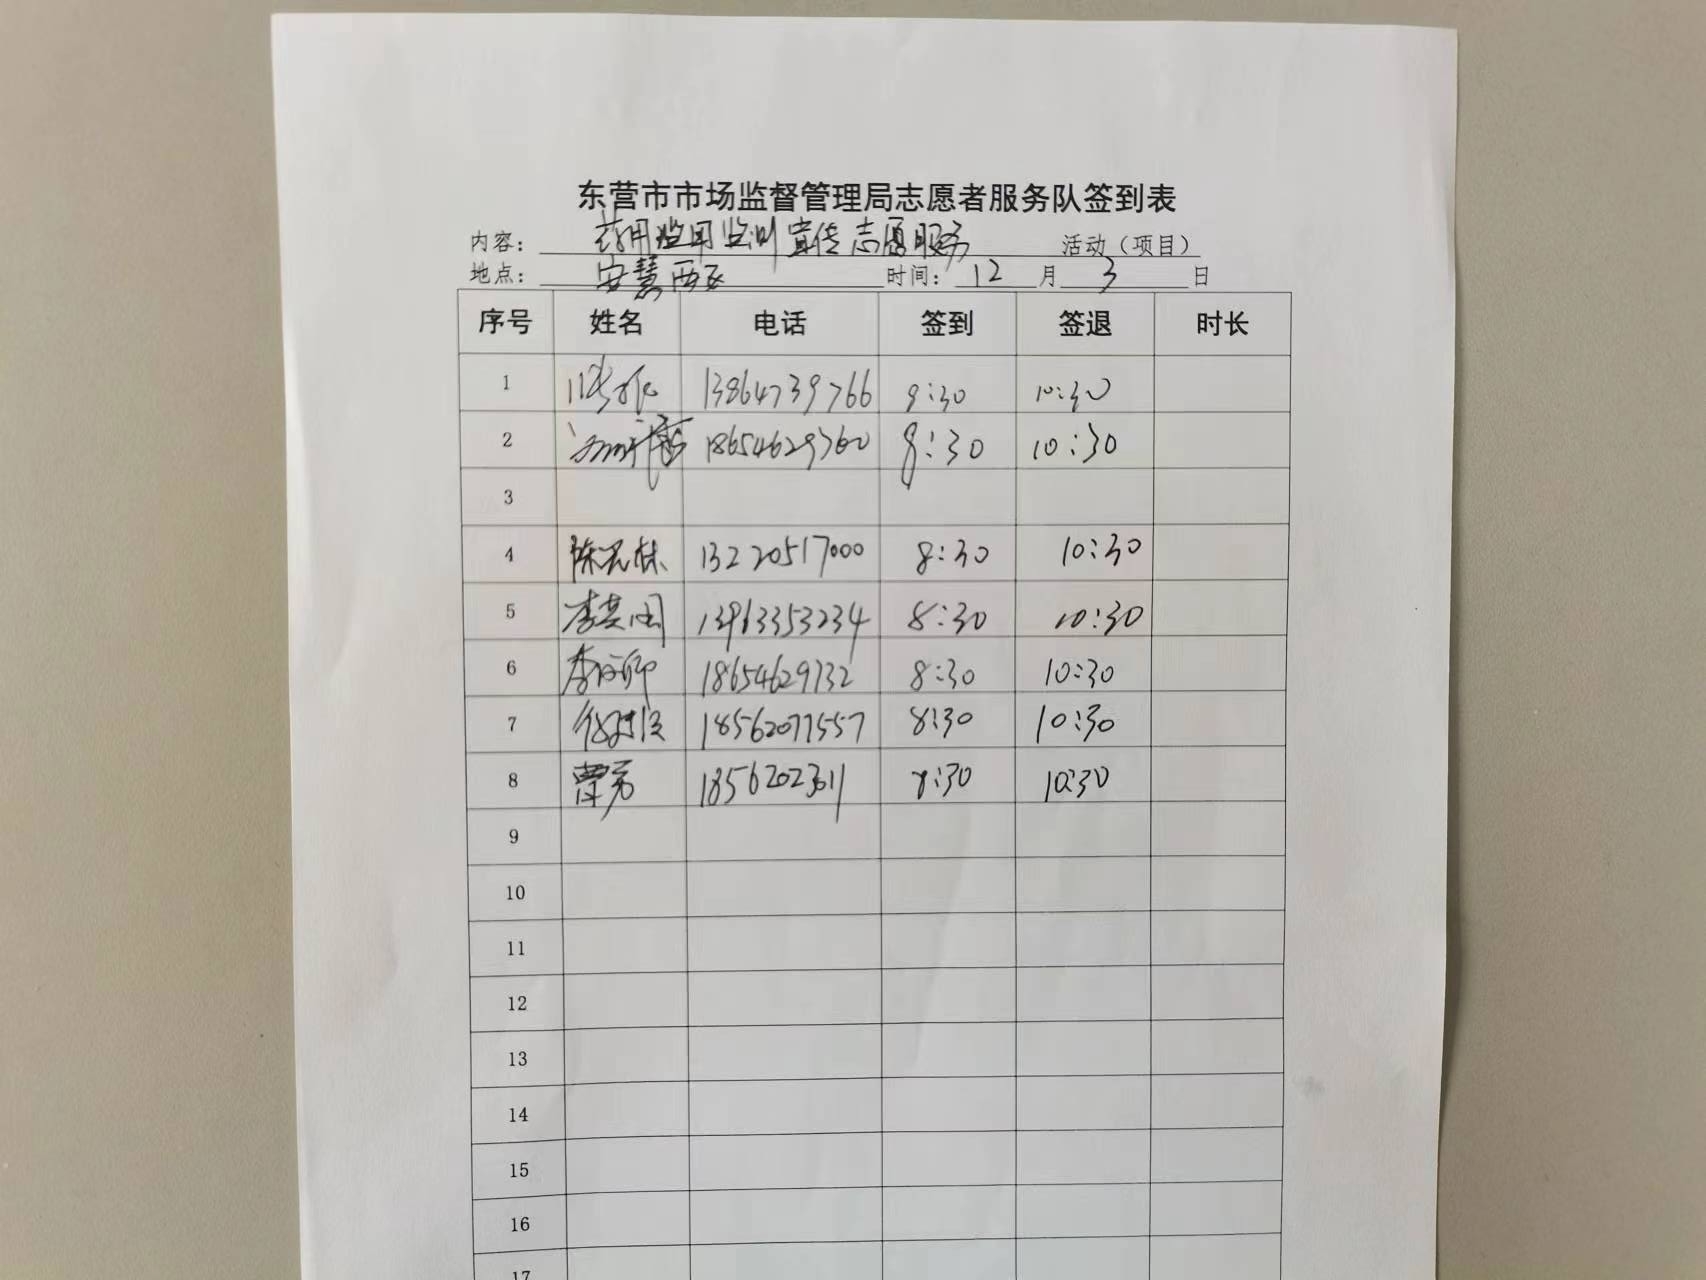 东营市市场监督管理局志愿者服务队签到表
内容: 药用 监测宣传志愿服务 活动（项目）
地点: 安慧西区 时间: 12 月 3 日
序号 姓名 电话 签到 签退 时长
1 13864739766 9:30 10:30
2 18654629760 8:30 10:30
3
4 陈 林 13220517000 8:30 10:30
5 李英国 13963353234 8:30 10:30
6 李 18654629732 8:30 10:30
7 18562077557 8:30 10:30
8 覃芳 18562023011 8:30 10:30
9
10
11
12
13
14
15
16
17